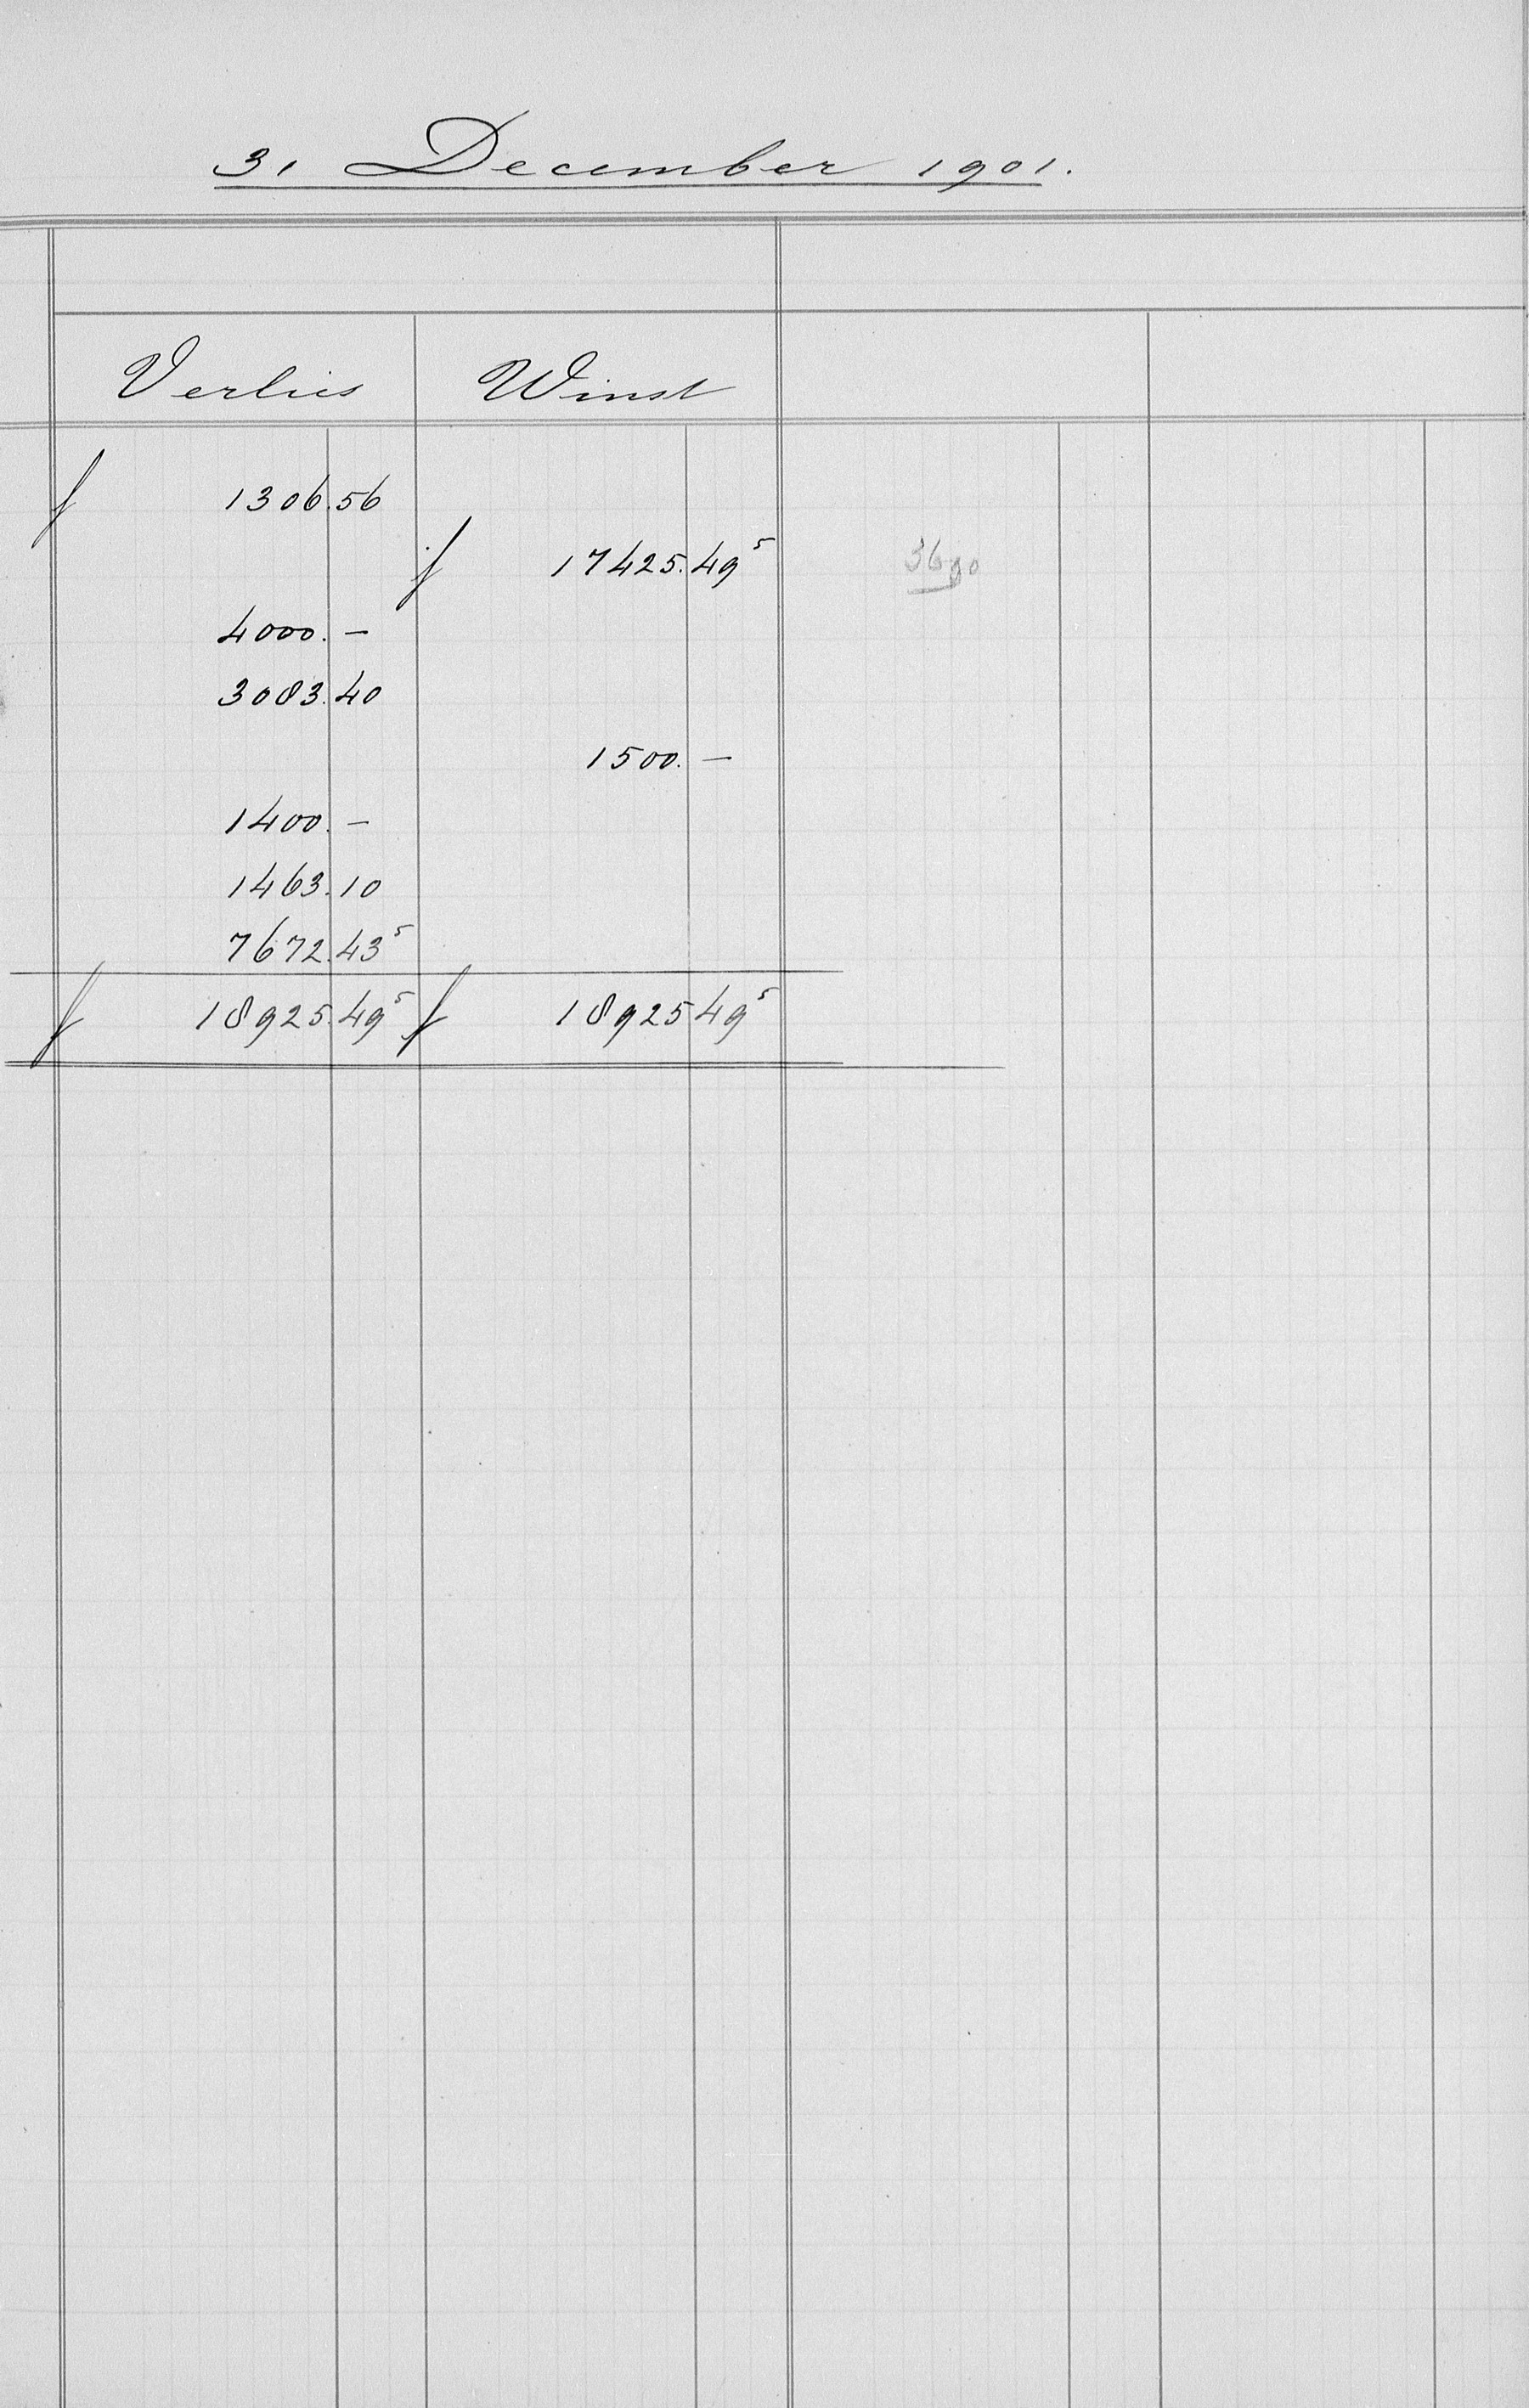 31 December 1901.
Verlies Winst
f 1306.56
f 17425.49⁵
4000.—
3083.40
1500.—
1400.—
1463.10
7672.43⁵
f 18925.49⁵ f 18925 49⁵